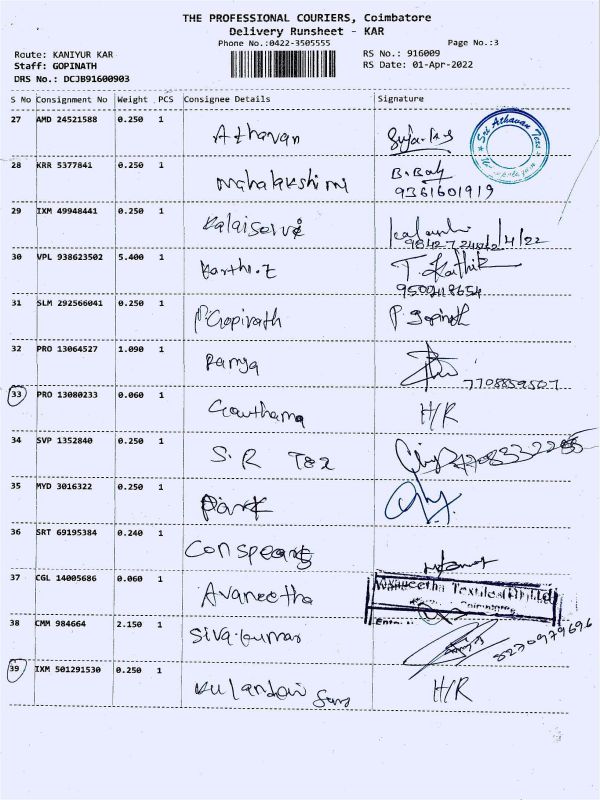 THE PROFESSIONAL COURIERS, Coimbatore
Delivery Runsheet - KAR
Phone No.:0422-3505555
Page No.:3
Route: KANIYUR KAR
RS No.: 916009
Staff: GOPINATH
RS Date: 01-Apr-2022
DRS No.: DCJB91600903
S No Consignment No Weight PCS Consignee Details Signature
27 AMD 24521588 0.250 1 Athavan
Sri Athavan Texs
28 KRR 5377841 0.250 1 Mahalakshimi B.Baby
9361601919
29 IXM 49948441 0.250 1 Kalaiselvi
/4/22
30 VPL 938623502 5.400 1 Karthi.T T. Karthik
31 SLM 292566041 0.250 1 P.Gopinath P. Gopinath
32 PRO 13064527 1.090 1 Ramya
7708859507
33 PRO 13080233 0.060 1 Gowthama H/R
34 SVP 1352840 0.250 1 S.R Tex
35 MYD 3016322 0.250 1 Park
36 SRT 69195384 0.240 1 Conspeang
37 CGL 14005686 0.060 1 Avaneetha
Avaneetha Textiles (P) Ltd
38 CMM 984664 2.150 1 Siva kumar
8270979696
39 IXM 501291530 0.250 1 Kulandai Samy H/R